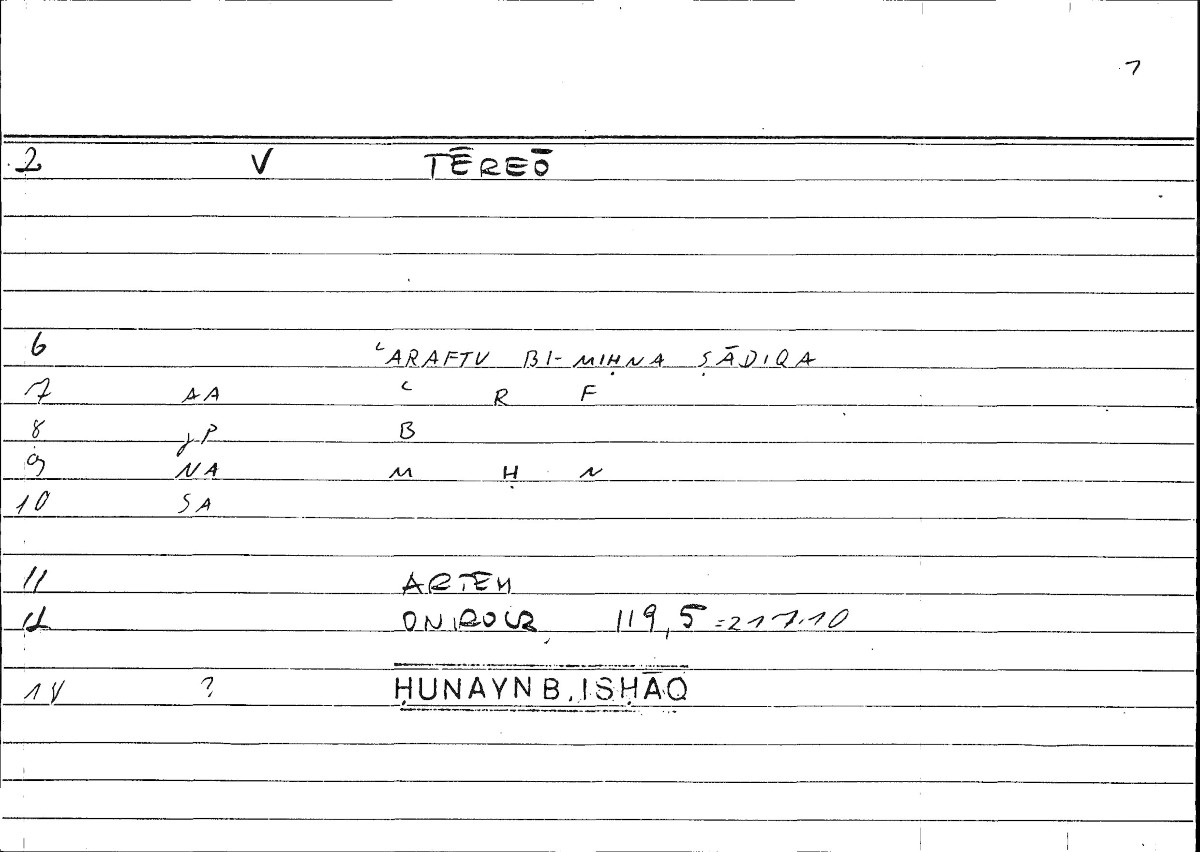 7
2 V TĒREŌ
6 ʿARAFTU BI-MIḤNA ṢĀDIQA
7 AA ʿ R F
8 γP B
9 NA M Ḥ N
10 SA
11 ARTEM
12 ONIROCR 119,5 =217.10
14 ? ḤUNAYN B. ISḤĀQ